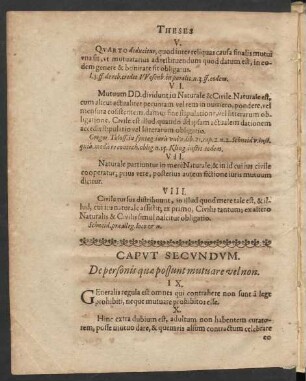 THESES
V.
QVARTO deducitur, quod inter reliquas causa finalis mutui
una sit, ut mutuatarius ad restituendum quod datum est, in eo-
dem genere & bonitate sit obligatus.
VI.
Mutuum DD. dividunt in Naturale & Civile. Naturale est,
cum alicui actualiter pecuniam vel rem in numero, pondere, vel
mensura consistentem damus sine stipulatione, vel literarum ob-
ligatione. Civile est illud quando ad ipsam actualem dationem
accedit stipulatio vel literarum obligatio.
VII.
Naturale partiuntur in merè Naturale, & in id cui jus civile
cooperatur, prius verè, posterius autem fictione iuris mutuum
dicitur.
VIII.
Civile rursus distribuunt, in illud quod mere tale est, & il-
lud, cui ius naturale assistit; ex primo, Civilis tantum; ex altero
Naturalis & Civilis simul nascitur obligatio.
CAPUT SECUNDUM.
De personis quæ possunt mutuare vel non.
IX.
GEneralis regula est omnes qui contrahere non sunt à lege
prohibiti, neque mutuare prohibitos esse.
X.
Hinc extra dubium est, adultum non habentem curato-
rem, posse mutuo dare, & quemvis alium contractum celebrare
eo